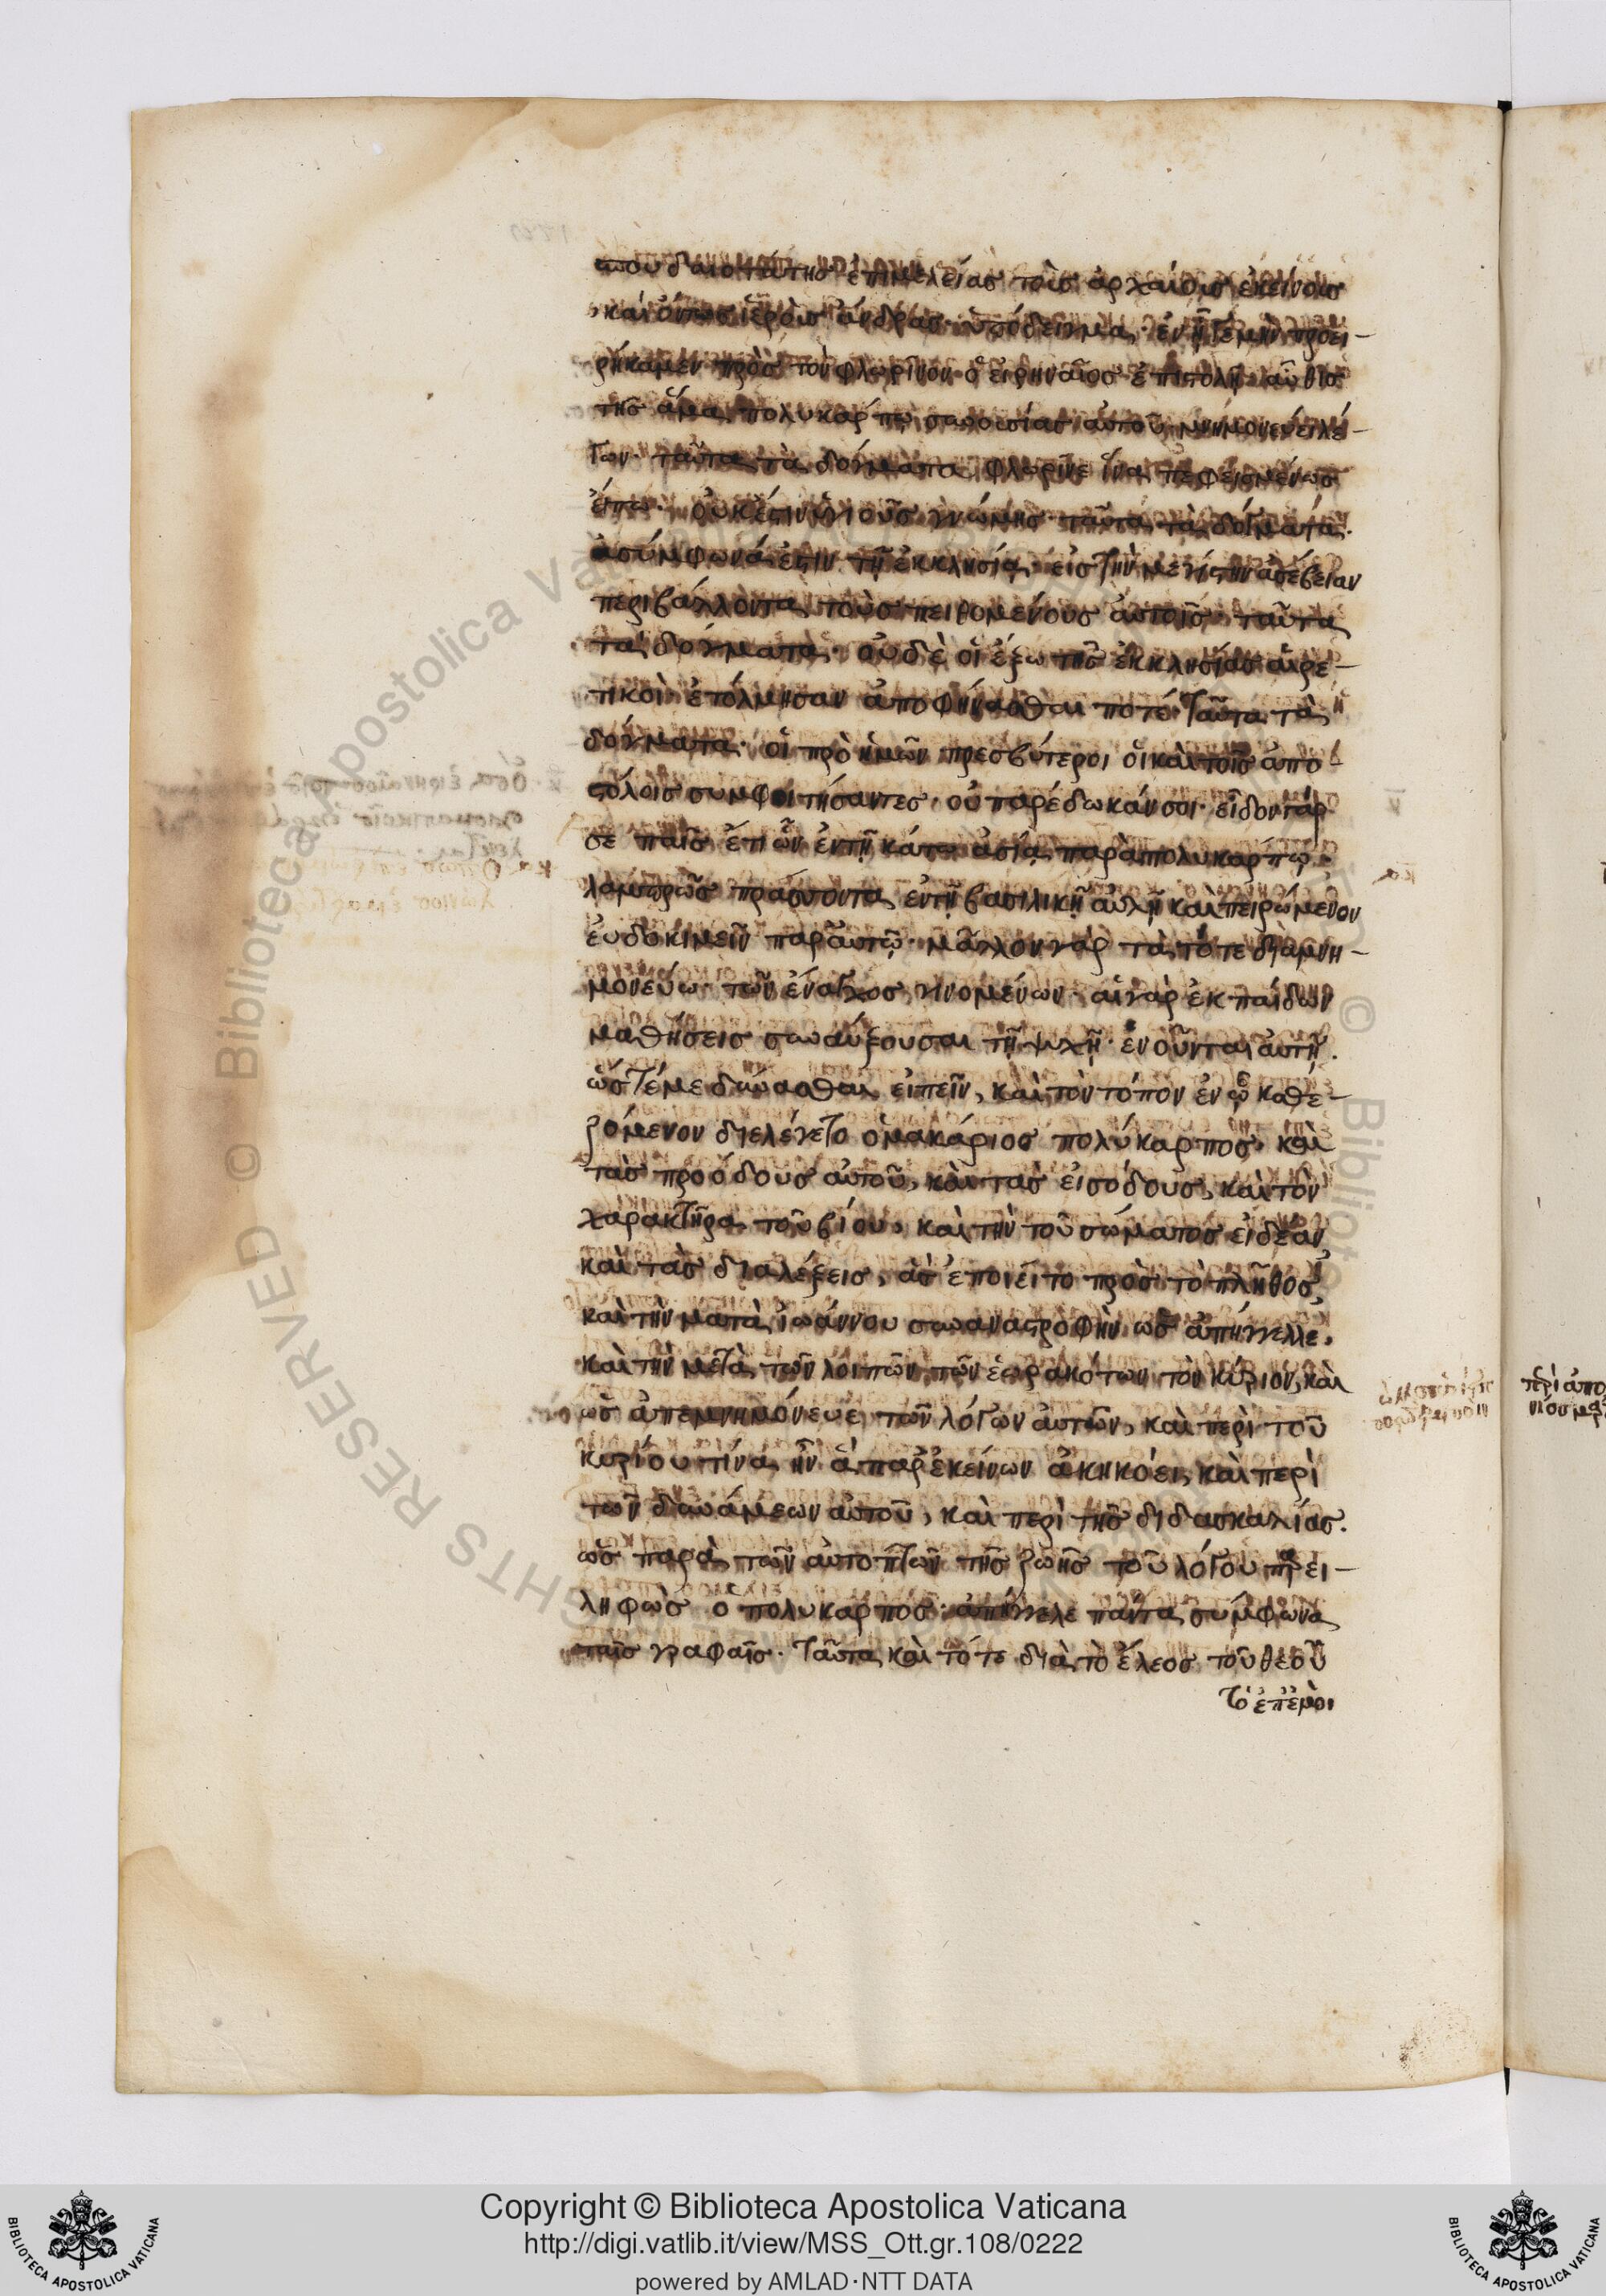 σπουδαιοτάτης ἐπιμελείας τοὺς ἀρχαίους ἐκείνους
καὶ ὄντως ἱεροὺς ἄνδρας ὑπόδειγμα· ἐν ᾗ γε μὴν προει-
ρήκαμεν πρὸς τὸν φλωρῖνον ὁ εἰρηναῖος ἐπιστολῇ αὖθις
τῆς ἅμα πολυκάρπῳ συνουσίας αὐτοῦ μνημονεύει λέ-
γων· ταῦτα τὰ δόγματα φλωρῖνε ἵνα πεφεισμένως
εἴπω· οὐκ ἔστιν ὑγιοῦς γνώμης· ταῦτα τὰ δόγματα
ἀσύμφωνά ἐστιν τῇ ἐκκλησίᾳ· εἰς τὴν μεγίστην ἀσέβειαν
περιβάλλοντα τοὺς πειθομένους αὐτοῖς· ταῦτα
τὰ δόγματα· οὐδὲ οἱ ἔξω τῆς ἐκκλησίας αἱρε-
τικοὶ ἐτόλμησαν ἀποφήνασθαι ποτέ· ταῦτα τὰ
δόγματα· οἱ πρὸ ἡμῶν πρεσβύτεροι οἱ καὶ τοῖς ἀπο-
στόλοις συμφοιτήσαντες· οὐ παρέδωκάν σοι· εἶδον γάρ
σε παῖς ἔτι ὢν ἐν τῇ κάτω ἀσίᾳ παρὰ πολυκάρπῳ·
λαμπρῶς πράσσοντα ἐν τῇ βασιλικῇ αὐλῇ καὶ πειρώμενον
εὐδοκιμεῖν παρ' αὐτῷ· μᾶλλον γὰρ τὰ τότε διαμνη-
μονεύω· τῶν ἔναγχος γινομένων· αἱ γὰρ ἐκ παίδων
μαθήσεις συναύξουσαι τῇ ψυχῇ· ἑνοῦνται αὐτῇ.
ὥστέ με δύνασθαι εἰπεῖν, καὶ τὸν τόπον ἐν ᾧ καθε-
ζόμενον διελέγετο ὁ μακάριος πολύκαρπος· καὶ
τὰς προόδους αὐτοῦ, καὶ τὰς εἰσόδους, καὶ τὸν
χαρακτῆρα τοῦ βίου, καὶ τὴν τοῦ σώματος εἰδέαν
καὶ τὰς διαλέξεις, ἃς ἐποιεῖτο πρὸς τὸ πλῆθος,
καὶ τὴν μετὰ ἰωάννου συναναστροφὴν ὡς ἀπήγγελλε,
καὶ τὴν μετὰ τῶν λοιπῶν τῶν ἑωρακότων τὸν κύριον, καὶ
ὡς ἀπεμνημόνευε τῶν λόγων αὐτῶν, καὶ περὶ τοῦ
κυρίου τίνα ἦν ἃ παρ' ἐκείνων ἀκηκόει, καὶ περὶ
τῶν δυνάμεων αὐτοῦ, καὶ περὶ τῆς διδασκαλίας.
ὡς παρὰ τῶν αὐτοπτῶν τῆς ζωῆς τοῦ λόγου παρει-
ληφὼς ὁ πολύκαρπος· ἀπήγγελε πάντα σύμφωνα
ταῖς γραφαῖς· ταῦτα καὶ τότε διὰ τὸ ἔλεος τοῦ θεοῦ
τὸ ἐπ' ἐμοὶ
Copyright © Biblioteca Apostolica Vaticana
http://digi.vatlib.it/view/MSS_Ott.gr.108/0222
powered by AMLAD·NTT DATA